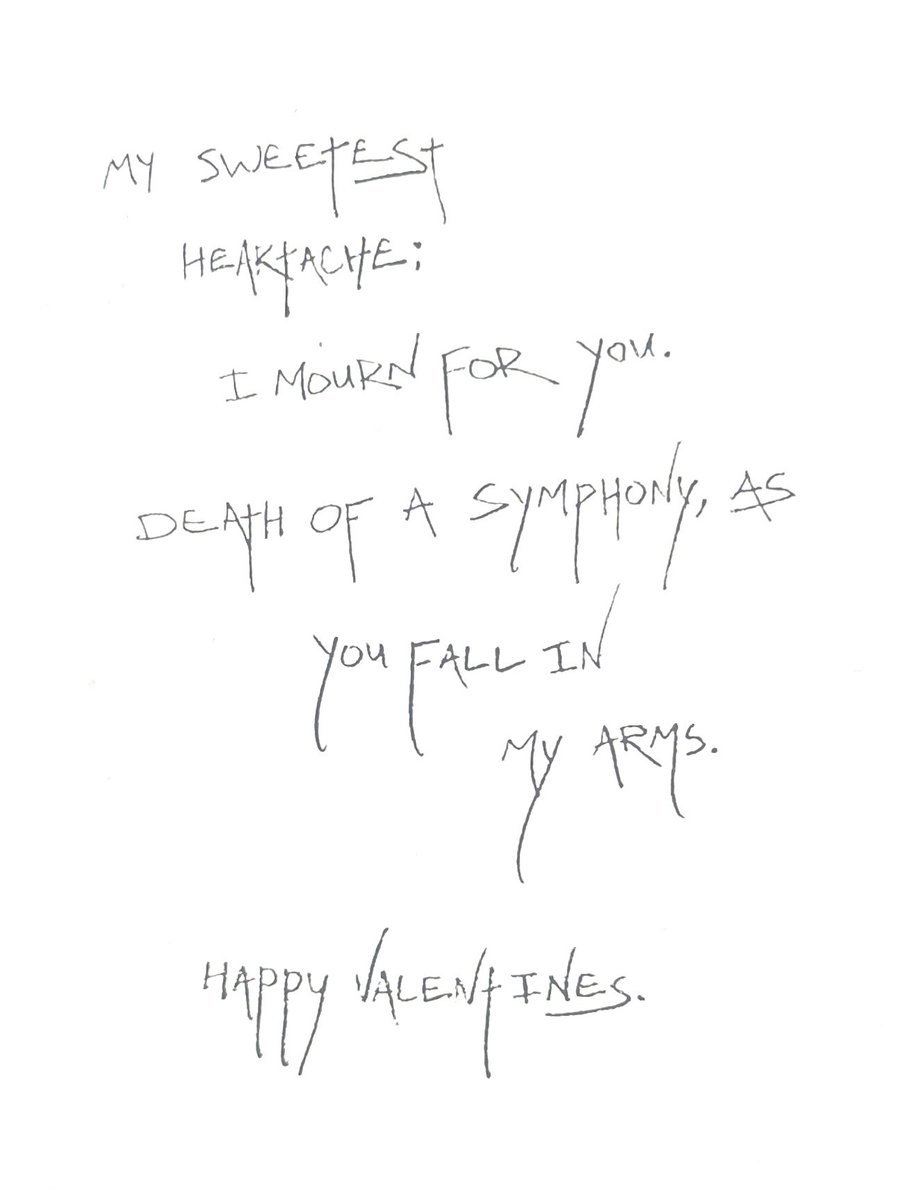 MY SWEETEST
HEARTACHE:
I MOURN FOR YOU.
DEATH OF A SYMPHONY, AS
YOU FALL IN
MY ARMS.
HAPPY VALENTINES.